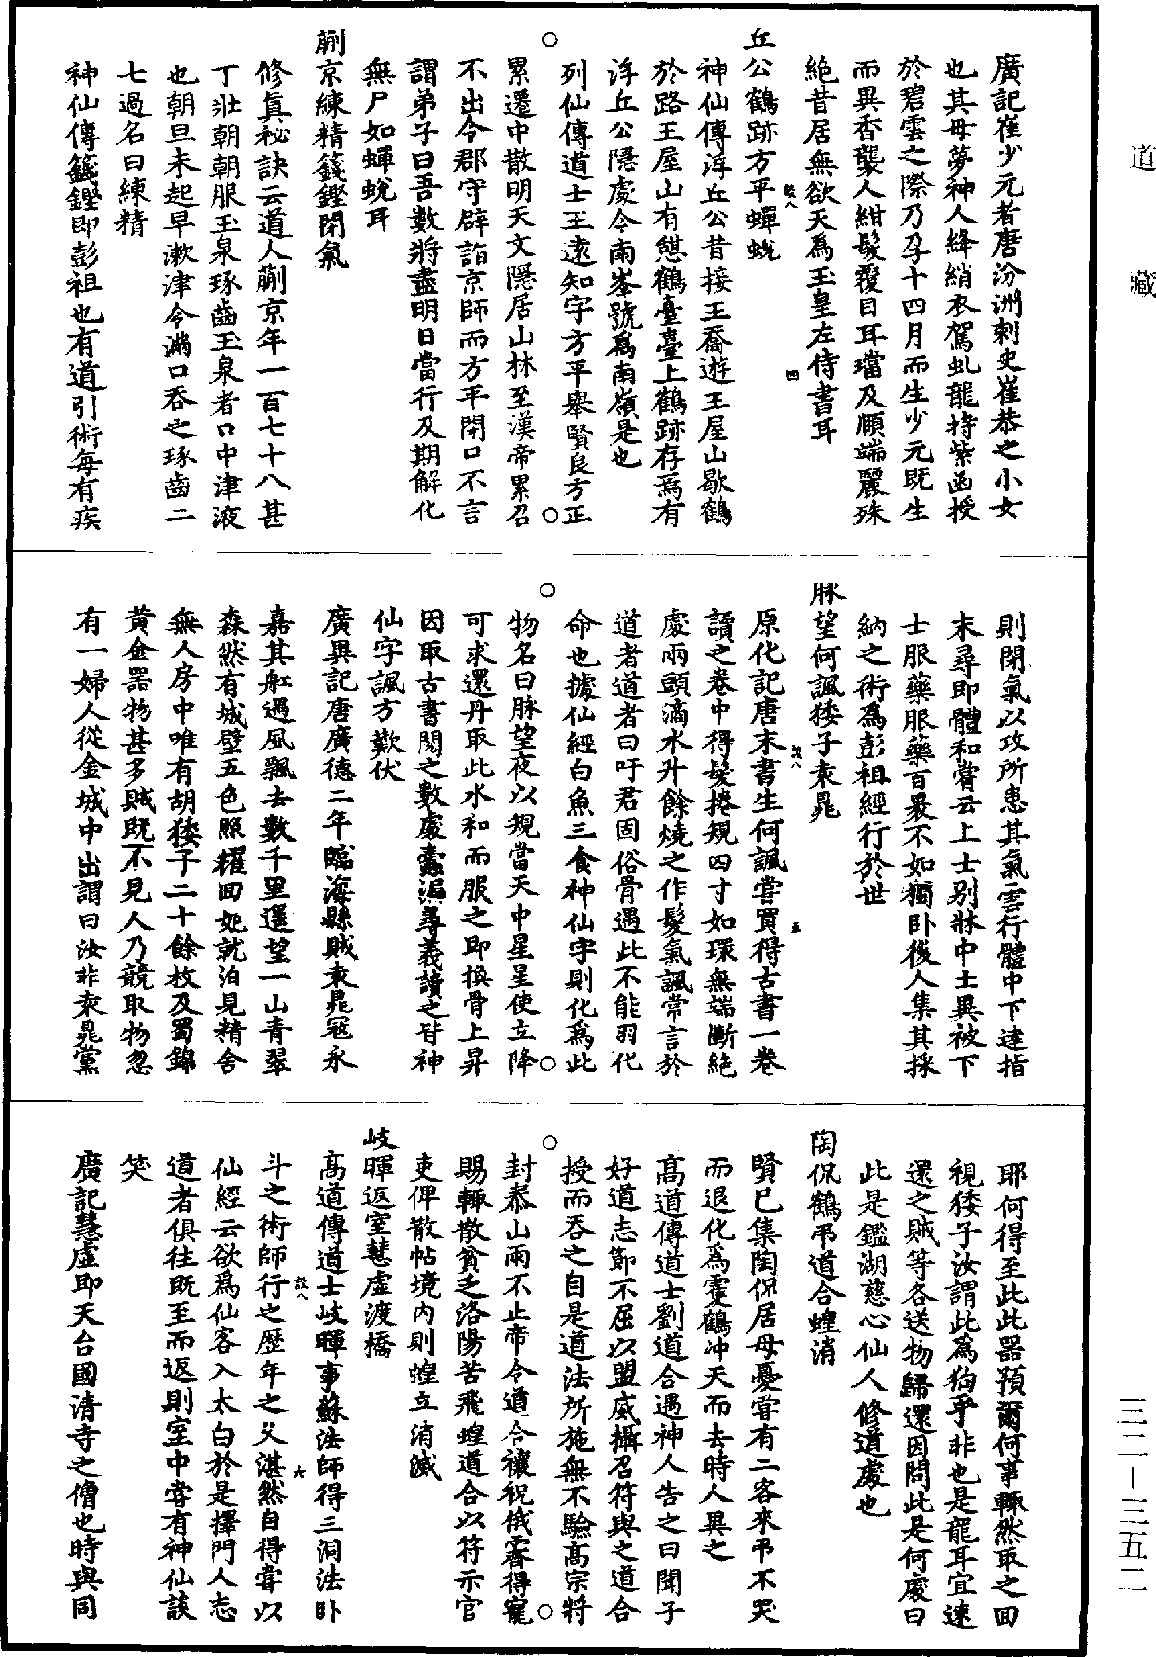 道藏
廣記崔少元者唐汾洲刺史崔恭之小女
也其母夢神人絳綃衣駕虬龍持紫函授
於碧雲之際乃孕十四月而生少元既生
而異香襲人紺髮覆目耳璫及頤端麗殊
絕昔居無欲天為玉皇左侍書耳
丘公鶴跡方平蟬蛻
神仙傳浮丘公昔接王喬遊王屋山歇鶴
於路王屋山有憩鶴臺臺上鶴跡存焉有
浮丘公隱處今南峯號為南嶺是也
列仙傳道士王遠知字方平舉賢良方正
累遷中散明天文隱居山林至漢帝累召
不出令郡守辟詣京師而方平閉口不言
謂弟子曰吾數將盡明日當行及期解化
無尸如蟬蛻耳
蒯京練精籛鏗閉氣
修真秘訣云道人蒯京年一百七十八甚
丁壯朝朝服玉泉琢齒玉泉者口中津液
也朝旦未起早漱津令滿口吞之琢齒二
七過名曰練精
神仙傳籛鏗即彭祖也有道引術每有疾
則閉氣以攻所患其氣雲行體中下達指
末尋即體和嘗云上士別牀中士異被下
士服藥服藥百裹不如獨卧後人集其採
納之術為彭祖經行於世
脉望何諷猣子袁晁
原化記唐末書生何諷嘗買得古書一卷
讀之卷中得髮捲規四寸如環無端斷絕
處兩頭滴水升餘燒之作髮氣諷常言於
道者道者曰吁君固俗骨遇此不能羽化
命也據仙經白魚三食神仙字則化為此
物名曰脉望夜以規當天中星星使立降
可求還丹取此水和而服之即換骨上昇
因取古書閱之數處蠹漏尋義讀之皆神
仙字諷方歎伏
廣異記唐廣德二年臨海縣賊袁晁寇永
嘉其舡遇風飄去數千里遥望一山青翠
森然有城壁五色照耀回舵就泊見精舍
無人房中唯有胡猣子二十餘枚及蜀錦
黃金器物甚多賊既不見人乃競取物忽
有一婦人從金城中出謂曰汝非袁晁黨
耶何得至此此器預爾何事輙然取之回
視猣子汝謂此為狗乎非也是龍耳宜速
還之賊等各送物歸還因問此是何處曰
此是鑑湖慈心仙人修道處也
陶侃鶴弔道合蝗消
賢己集陶侃居母憂嘗有二客來弔不哭
而退化為雙鶴冲天而去時人異之
高道傳道士劉道合遇神人告之曰聞子
好道志節不屈以盟威攝召符與之道合
授而吞之自是道法所施無不驗高宗將
封泰山雨不止帝令道合禳祝俄霽得寵
賜輙散貧乏洛陽苦飛蝗道合以符示官
吏俾散帖境内則蝗立消滅
岐暉返室慧虛渡橋
高道傳道士岐暉事蘇法師得三洞法卧
斗之術師行之歷年之久湛然自得嘗以
仙經云欲為仙客入太白於是擇門人志
道者俱往既至而返則室中嘗有神仙談
笑
廣記慧虛即天台國清寺之僧也時與同
三二—三五二